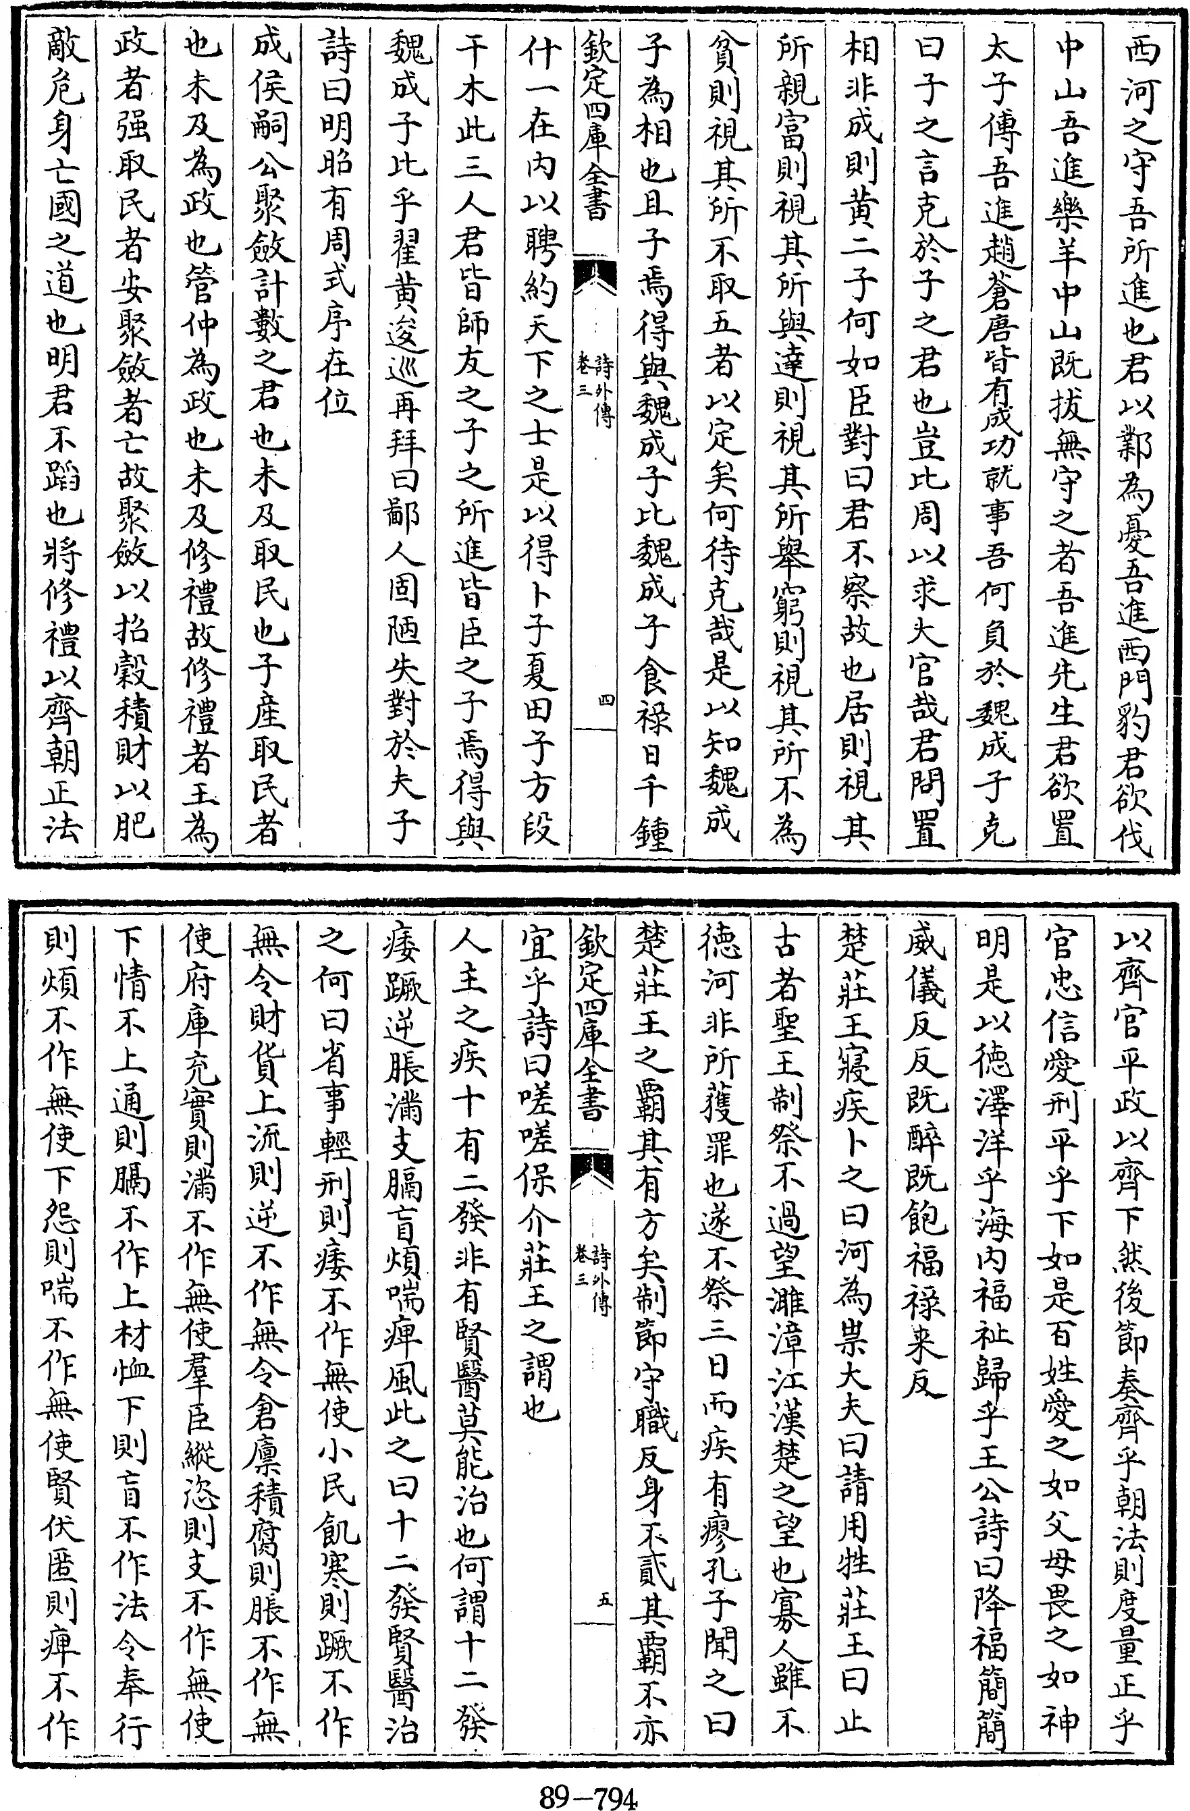 西河之守吾所進也君以鄴為憂吾進西門豹君欲伐
中山吾進樂羊中山既拔無守之者吾進先生君欲置
太子傅吾進趙蒼唐皆有成功就事吾何負於魏成子克
曰子之言克於子之君也豈比周以求大官哉君問置
相非成則黄二子何如臣對曰君不察故也居則視其
所親富則視其所與達則視其所舉窮則視其所不為
貧則視其所不取五者以定矣何待克哉是以知魏成
子為相也且子焉得與魏成子比魏成子食禄日千鍾
欽定四庫全書
詩外傳
卷三
四
什一在内以聘約天下之士是以得卜子夏田子方段
干木此三人君皆師友之子之所進皆臣之子焉得與
魏成子比乎翟黄逡巡再拜曰鄙人固陋失對於夫子
詩曰明昭有周式序在位
成侯嗣公聚斂計數之君也未及取民也子産取民者
也未及為政也管仲為政也未及修禮故修禮者王為
政者强取民者安聚斂者亡故聚斂以招穀積財以肥
敵危身亡國之道也明君不蹈也將修禮以齊朝正法
以齊官平政以齊下然後節奏齊乎朝法則度量正乎
官忠信愛刑平乎下如是百姓愛之如父母畏之如神
明是以德澤洋乎海内福祉歸乎王公詩曰降福簡簡
威儀反反既醉既飽福禄來反
楚莊王寢疾卜之曰河為祟大夫曰請用牲莊王曰止
古者聖王制祭不過望濉漳江漢楚之望也寡人雖不
德河非所獲罪也遂不祭三日而疾有瘳孔子聞之曰
楚莊王之霸其有方矣制節守職反身不貳其霸不亦
欽定四庫全書
詩外傳
卷三
五
宜乎詩曰嗟嗟保介莊王之謂也
人主之疾十有二發非有賢醫莫能治也何謂十二發
痿蹶逆脹滿支膈盲煩喘痺風此之曰十二發賢醫治
之何曰省事輕刑則痿不作無使小民飢寒則蹶不作
無令財貨上流則逆不作無令倉廪積腐則脹不作無
使府庫充實則滿不作無使羣臣縱恣則支不作無使
下情不上通則膈不作上材恤下則盲不作法令奉行
則煩不作無使下怨則喘不作無使賢伏匿則痺不作
89-794